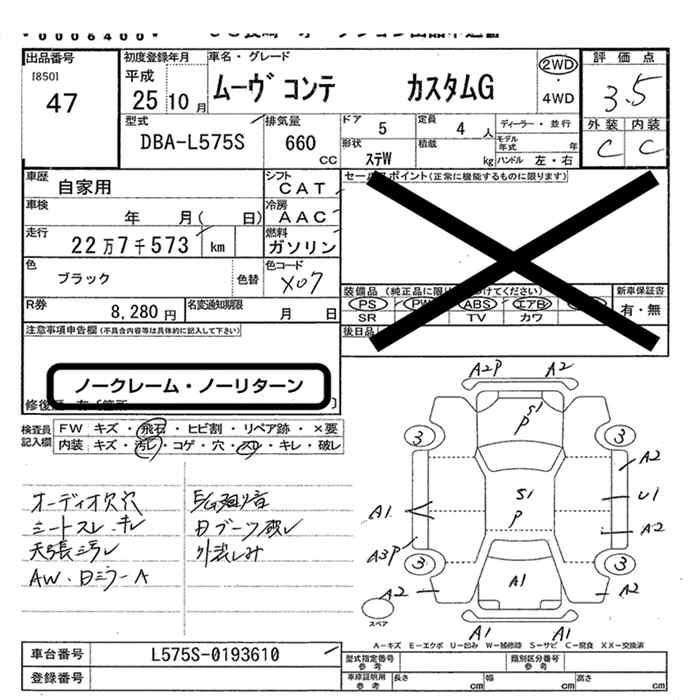 0006400
出品番号
[850]
47
初度登録年月
平成
25 10 月
車名・グレード
ムーヴ コンテ カスタムG
2WD
・
4WD
評価点
3.5
外装 内装
C C
型式
DBA-L575S
排気量
660
CC
ドア
5
定員
4 人
ディーラー・並行
モデル
年式 年
形状
ステW
積載
kg
ハンドル 左・右
車歴
自家用
シフト
CAT
車検
年 月( 日)
冷房
AAC
走行
22万7千573 km
燃料
ガソリン
色
ブラック
色替
色コード
X07
R券
8,280 円
名変通知期限
月 日
セールスポイント(正常に機能するものに限ります)
装備品
PS PW ABS エアB
SR TV カワ
新車保証書
有・無
後日品
注意事項申告欄(不具合内容等は具体的に記入して下さい)
ノークレーム・ノーリターン
修復歴
検査員
記入欄
FW キズ・飛石・ヒビ割・リペア跡・×要
内装 キズ・汚レ・コゲ・穴・スレ・キレ・破レ
オーディオ欠穴
シートスレ キレ
天張汚レ
AW・日ミラーA
E/G廻り音
日ブーツ破レ
A2P A2
S1
P
3 3
A2
A1
S1
U1
P
A2
A3P
3 3
A2
A1
A2
スペア
A1 A1
A-キズ E-エクボ U-凹み W-補修跡 S-サビ C-腐食 XX-交換済
車台番号
L575S-0193610
登録番号
型式指定番号
参考
類別区分番号
参考
車庫証明用
参考
長さ cm 幅 cm 高さ cm